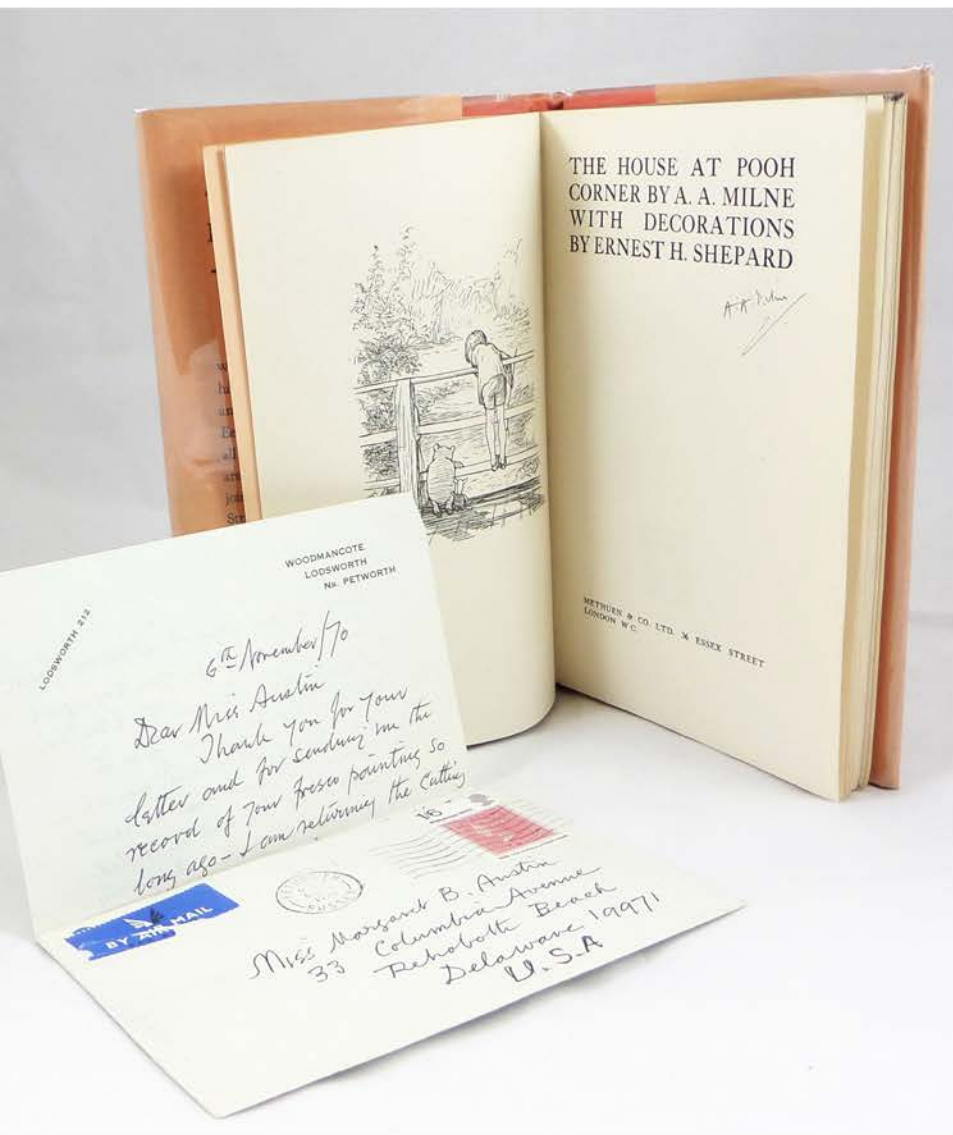 THE HOUSE AT POOH
CORNER BY A. A. MILNE
WITH DECORATIONS
BY ERNEST H. SHEPARD
A. A. Milne
METHUEN & CO. LTD. 36 ESSEX STREET
LONDON W.C.
WOODMANCOTE
LODSWORTH
NR. PETWORTH
LODSWORTH 212
6TH November/70
Dear Miss Austin
Thank you for your
letter and for sending me the
record of your fresco painting so
long ago - I am returning the cutting
BY AIR MAIL
1/6
Miss Margaret B. Austin
33 Columbia Avenue
Rehoboth Beach
Delaware 19971
U.S.A